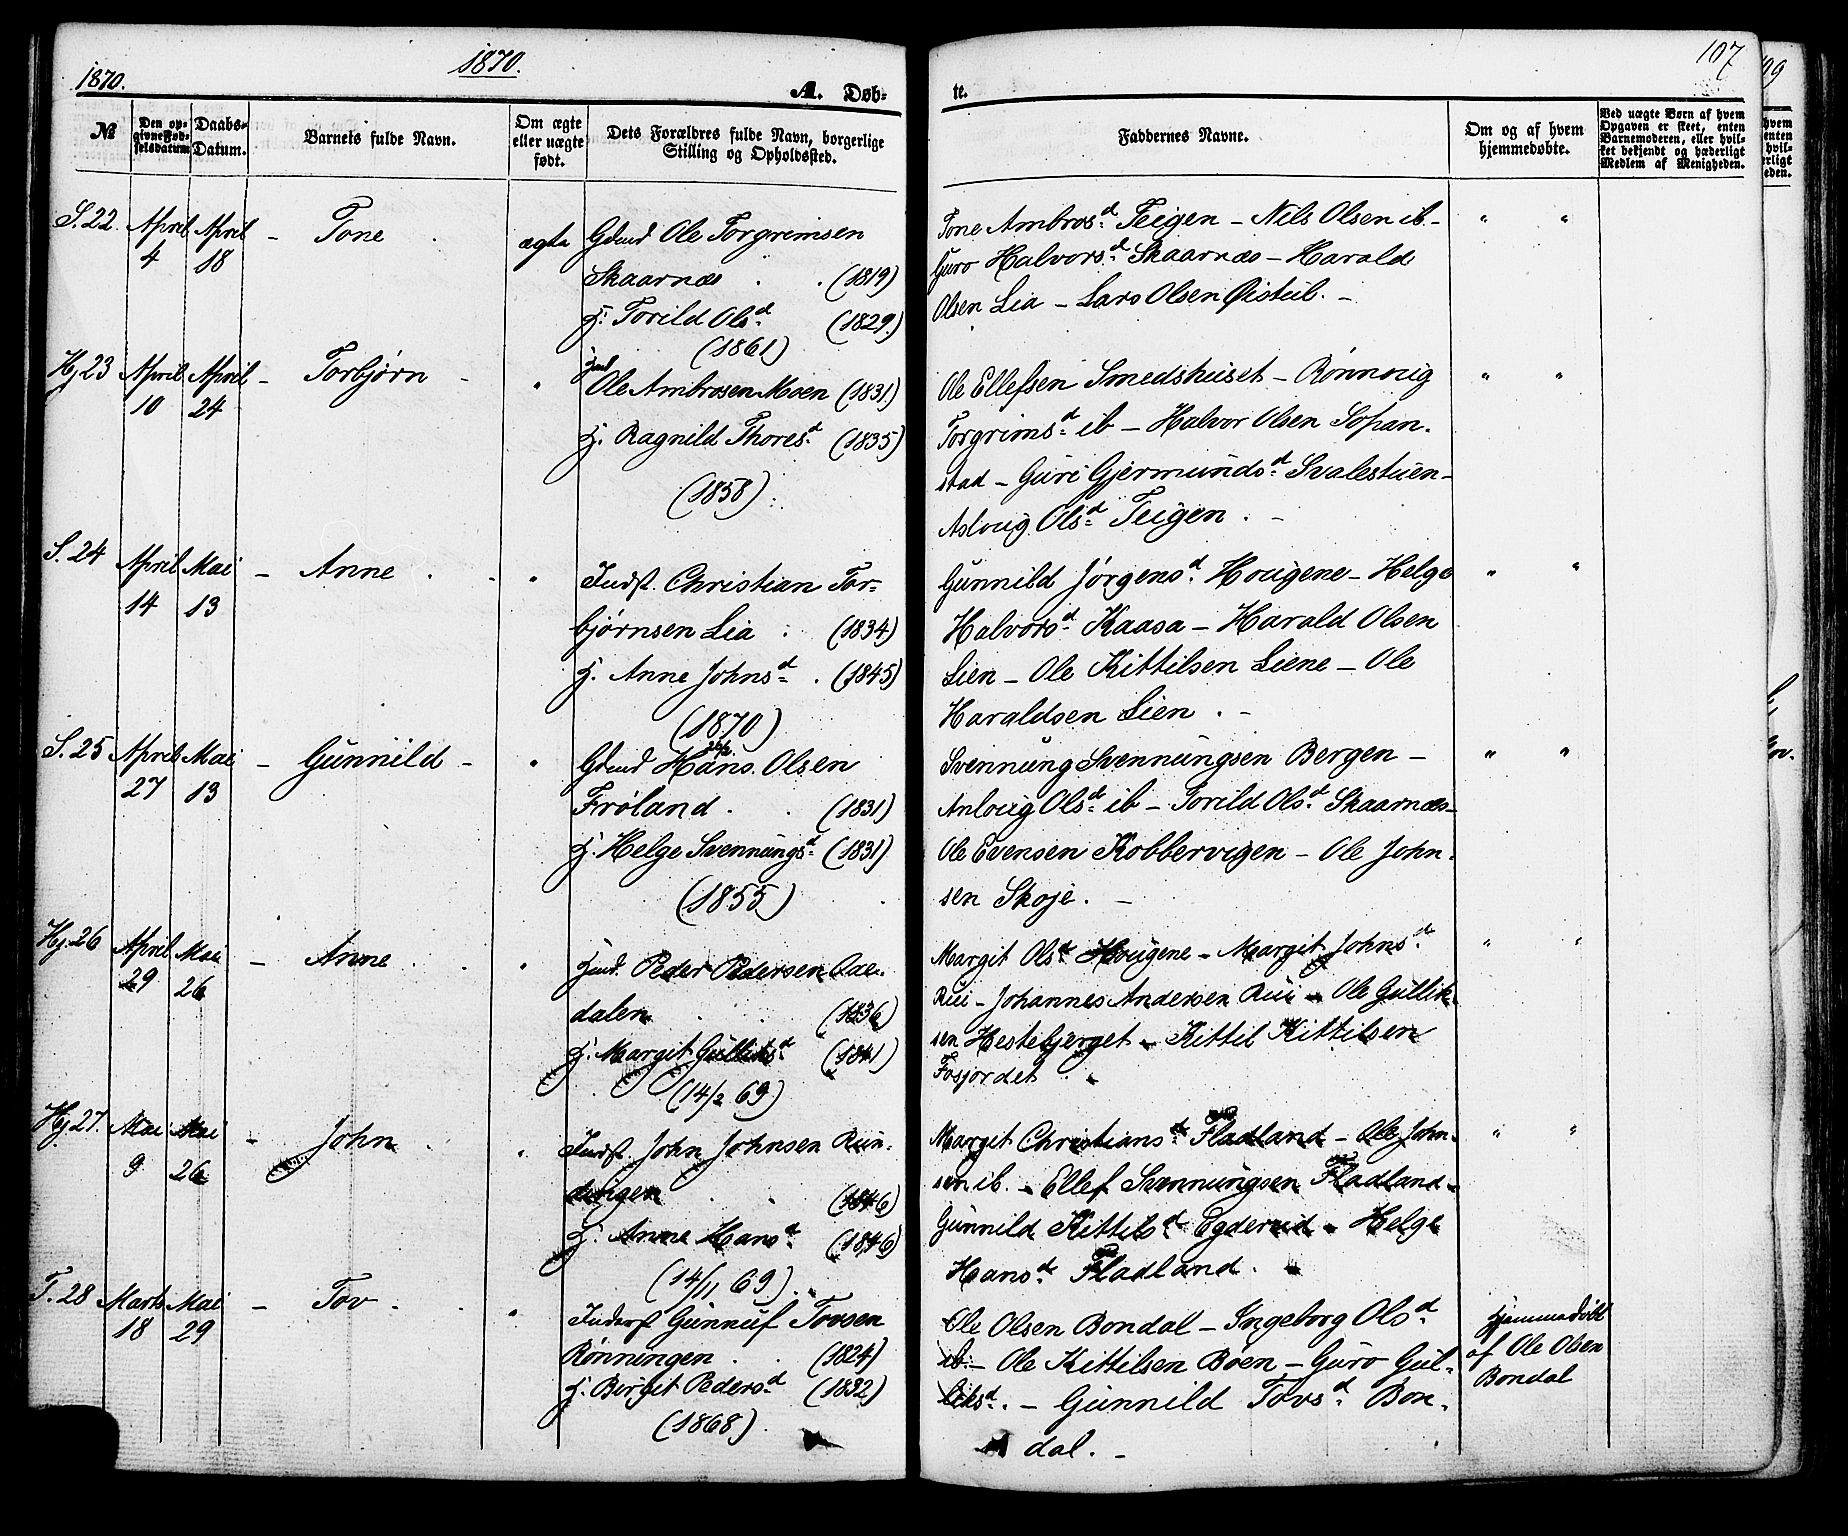 1870.
1870.
A. Døb-
№
Den op-
givne Fød-
selsdatum
Daabs-
Datum.
Barnets fulde Navn.
Om ægte
eller uægte
født.
Dets Forældres fulde Navn, borgerlige
Stilling og Opholdssted.
S. 22. April 4 April 18 - Tone ægte Gdmd Ole Torgrimsen
Skaarnæs (1819)
H. Torild Olsd (1829)
(1861)
Hj 23 April 10 April 24 - Torbjørn - " Ole Ambrosen Moen (1831)
H. Ragnild Thoresd (1835)
(1858)
S. 24 April 14 Mai 13 - Anne " Inderst. Christian Tor-
bjørnsen Lia (1834)
H. Anne Johnsd (1845)
(1870)
S. 25 April 27 Mai 13 - Gunnild - " Gdmd Hans Olsen
Frøland (1831)
H. Helge Svennungsd (1831)
(1855)
Hj. 26 April 29 Mai 26 - Anne " Peder Pedersen
dalen (1836)
H. Margit Gulliksd (1841)
(14/2 69)
Hj 27. Mai 9 Mai 26 - John " Inderst. John Johnsen Run-
dingen (1846)
H. Anne Hansd (1846)
(14/11 69)
T. 28 Marts 18 Mai 29 - Tov " Inderst Gunnuf Tovsen
Rønningen (1824)
H. Birgit Pedersd (1832)
(1868)
107
te.
Faddernes Navne.
Om og af hvem
hjemmedøbte.
Ved uægte Børn af hvem
Opgaven er skeet, enten
Barnemoderen, eller hvil-
ket bekjendt og hæderligt
Medlem af Menigheden.
Tone Ambrosd Teigen - Nils Olsen ib -
Guro Halvorsd Skaarnæs - Harald
Olsen Lia - Lars Olsen Øisteil. -
Ole Ellefsen Smedshuset - Rønnoug
Torgrimsd ib - Halvor Olsen Sopan-
stad - Guri Gjermundsd Svalestuen -
Asloug Olsd Teigen. -
Gunnild Jørgensd Hougene - Helge
Halvorsd Kaasa - Harald Olsen
Lien - Ole Kittilsen Liene - Ole
Haraldsen Lien. -
Svennung Svennungsen Bergen -
Anloug Olsd ib - Torild Olsd Skaarnæs -
Ole Evensen Kobbervigen - Ole John-
sen Skoje. -
Margit Olsd Hougene - Margit Johnsd
Rui - Johannes Andersen Rui - Ole Gullik-
sen Hestebjerget - Kittil Kittilsen
Fosjordet
Margit Christiansd Fladland - Ole John-
sen ib. - Ellef Svennungsen Fladland -
Gunnild Kittilsd Egderud - Helge
Hansd Fladland.
Ole Olsen Bondal - Ingeborg Olsd
ib. - Ole Kittilsen Bøen - Guro Gul-
liksd. - Gunnild Tovsd Bon-
dal. -
Hjemmedøbt
af Ole Olsen
Bondal